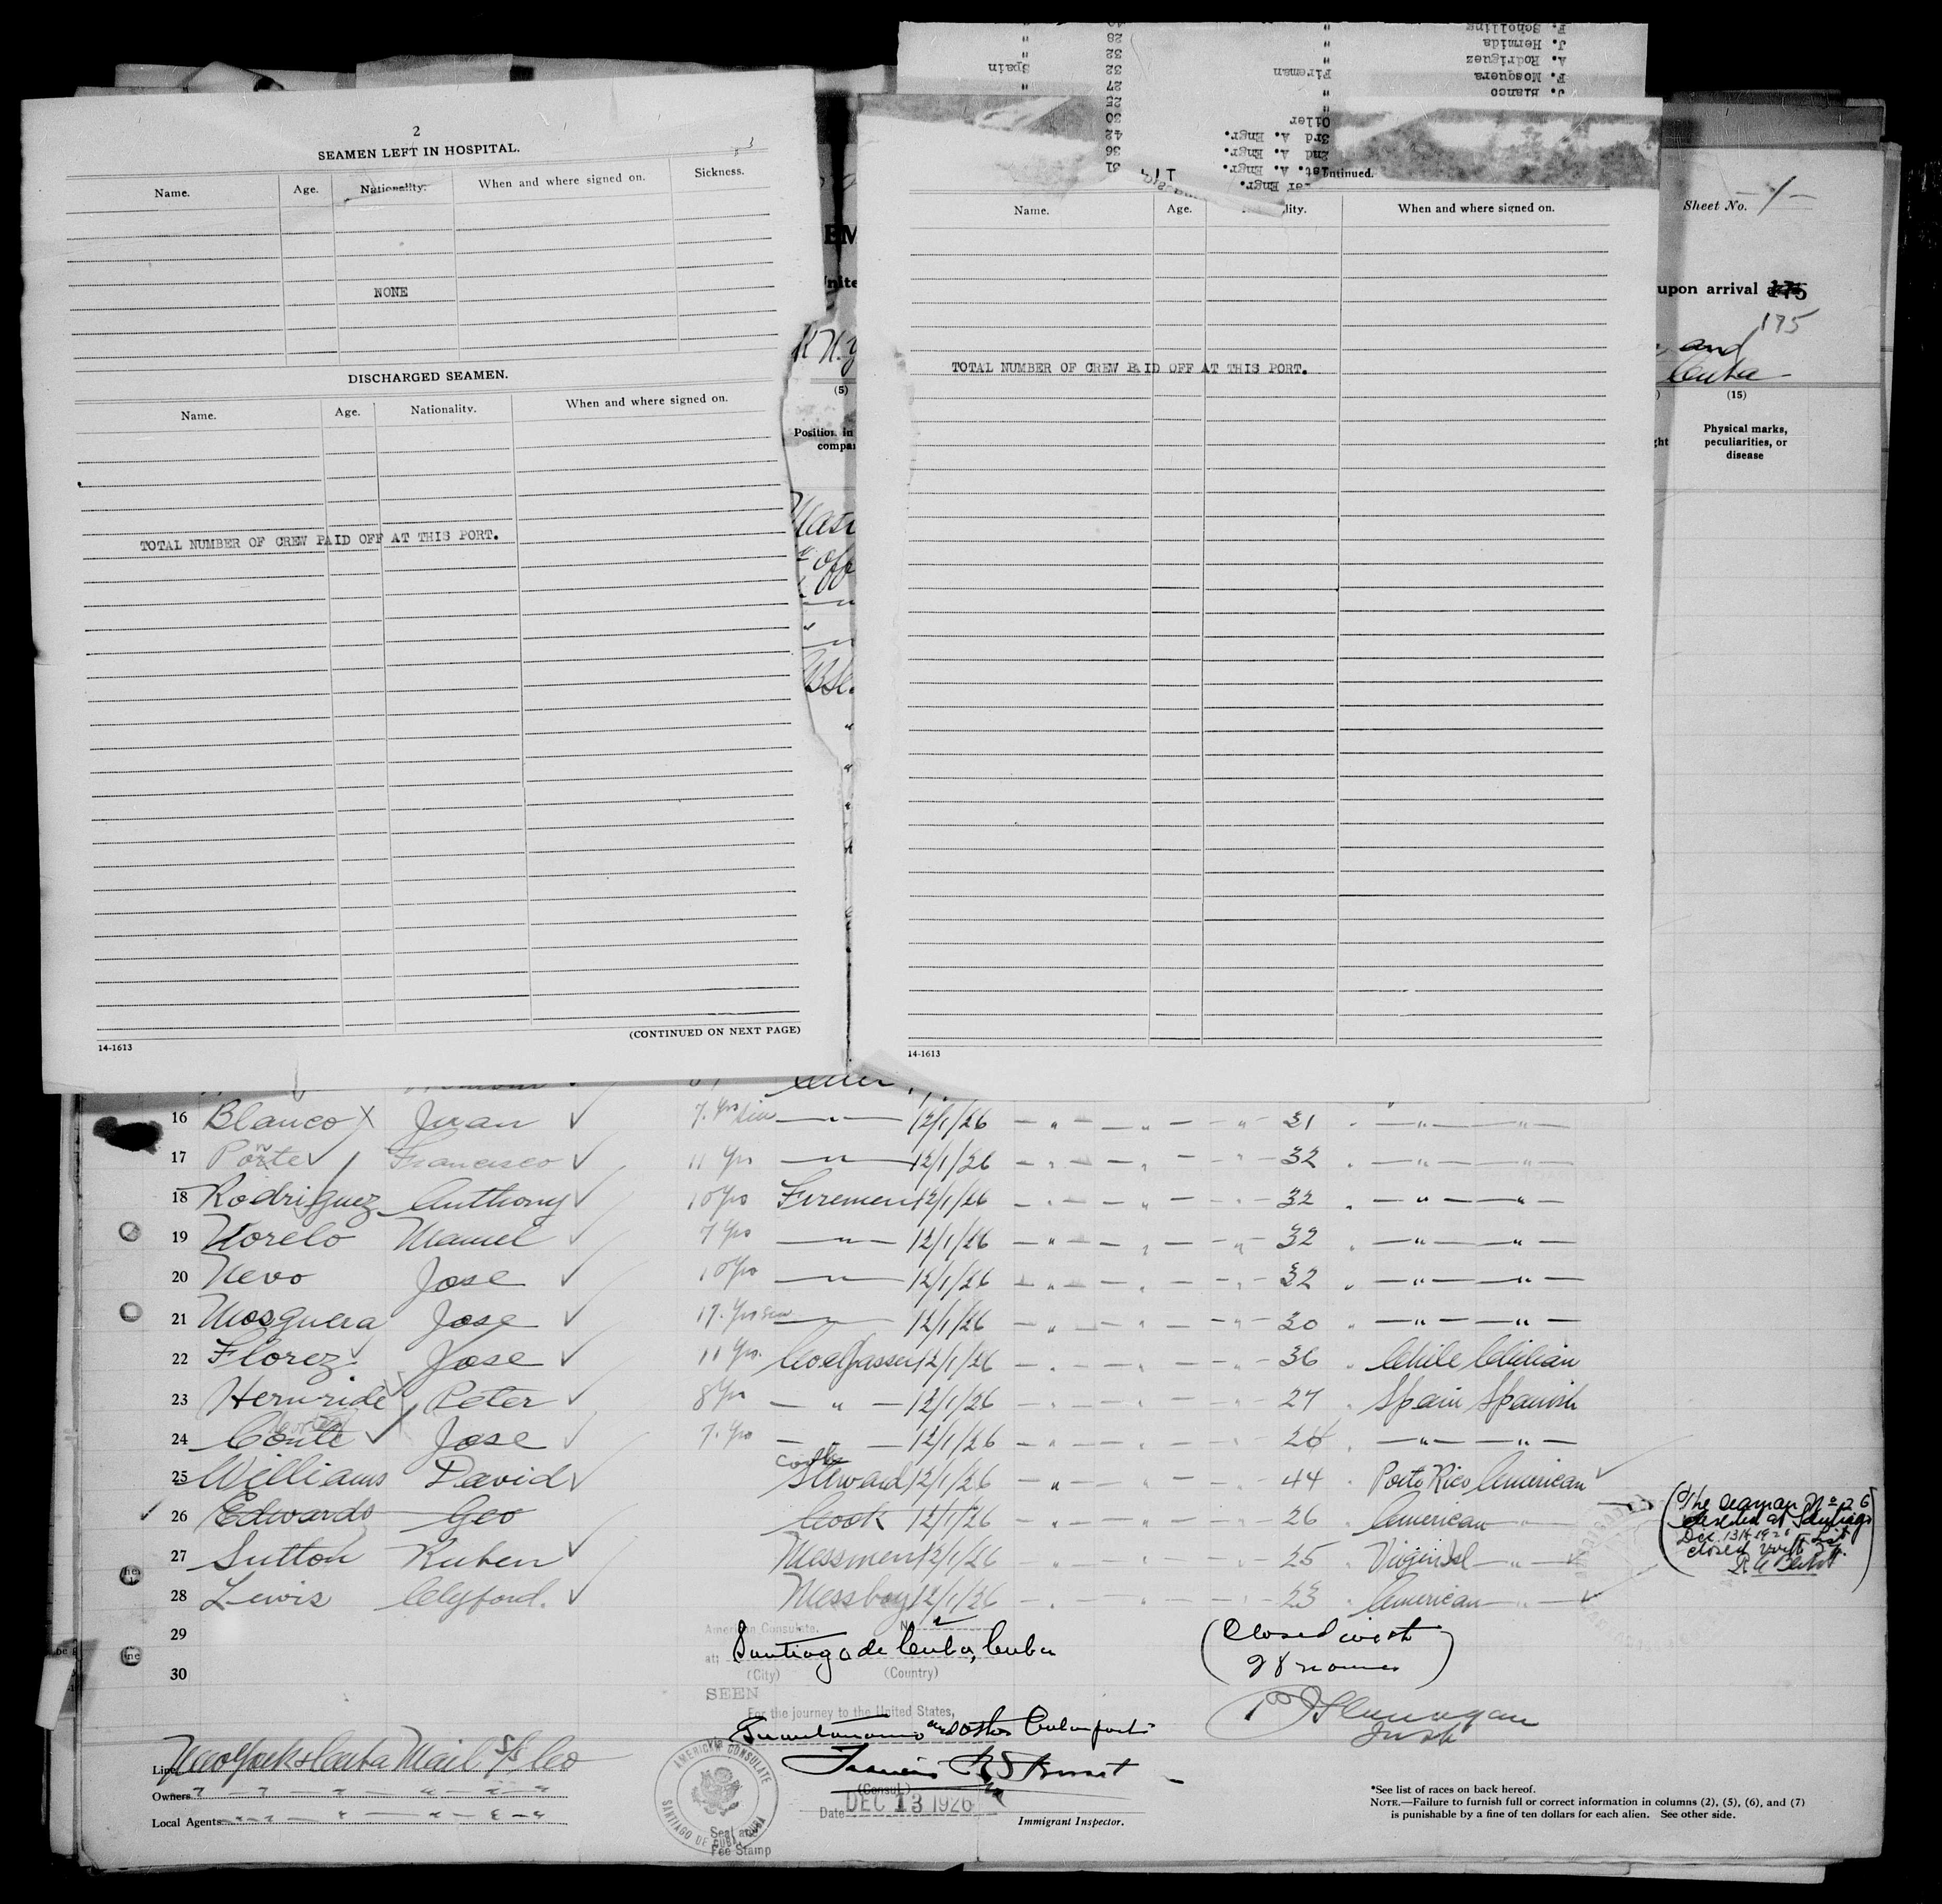 2
SEAMEN LEFT IN HOSPITAL.
Name. Age. Nationality. When and where signed on. Sickness.
NONE
DISCHARGED SEAMEN.
Name. Age. Nationality. When and where signed on.
TOTAL NUMBER OF CREW PAID OFF AT THIS PORT.
(CONTINUED ON NEXT PAGE)
14-1613
F. Scholling " 28 "
J. Hermida " 32 "
A. Rodriguez Fireman 32 Spain
F. Mosquera " 27 "
J. Blanco " 25
Oiler 30
3rd A. Engr. 42
2nd A. Engr. 36
1st. A. Engr. 31
ntinued.
Name. Age. lity. When and where signed on.
TOTAL NUMBER OF CREW PAID OFF AT THIS PORT.
14-1613
Sheet No. -1-
upon arrival 175
175
and
Cuba
(5)
Position in
compa
(15)
Physical marks,
peculiarities, or
disease
16 Blanco X Juan 7. Yrs 12/1/26 31
17 Porte Francisco 11 Yrs 12/1/26 32
18 Rodriguez Anthony 10 Yrs Firemen 12/1/26 32
19 Norelo Manuel 7 Yrs 12/1/26 32
20 Nevo Jose 10 Yrs 12/1/26 32
21 Mosquera Jose 17. Yrs 12/1/26 30
22 Florez Jose 11 Yrs. Coal Passer 12/1/26 36 Chile Chilian
23 Hernride Peter 8 Yrs " 12/1/26 27 Spain Spanish
24 Conte Jose 7. Yrs 12/1/26 26
25 Williams David Cook Steward 12/1/26 44 Porto Rico American
26 Edwards Geo Cook 12/1/26 26 American
27 Sutton Ruben Messmen 12/1/26 25 Virgin Isl
28 Lewis Clyford. Messboy 12/1/26 23 American
29
30
(The seaman No 26
deserted at Santiago
Dec. 13th 1926 List
closed with 27
American Consulate. No
at: Santiago de Cuba, Cuba
(City) (Country)
SEEN
For the journey to the United States,
Guantanamo and other Cuban ports
Via
(Consul)
Date DEC 13 1926
AMERICAN CONSULATE
SANTIAGO DE CUBA, CUBA
Seal and
Fee Stamp
Immigrant Inspector.
(Closed with
28 names)
Line New York & Cuba Mail S/S Co
Owners
Local Agents
*See list of races on back hereof.
NOTE.—Failure to furnish full or correct information in columns (2), (5), (6), and (7)
is punishable by a fine of ten dollars for each alien. See other side.